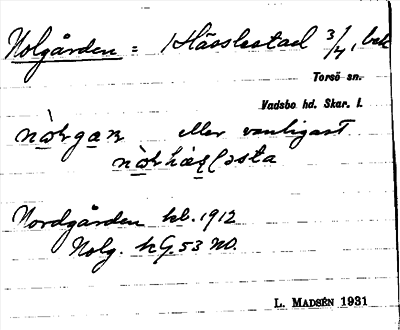 Nolgården = 1 Hässlestad 3/4, bel
Torsö sn.
Vadsbo hd. Skar. l.
eller vanligast
Nordgården kb. 1912
Nolg. kG. 53 NO.
L. MADSÉN 1931